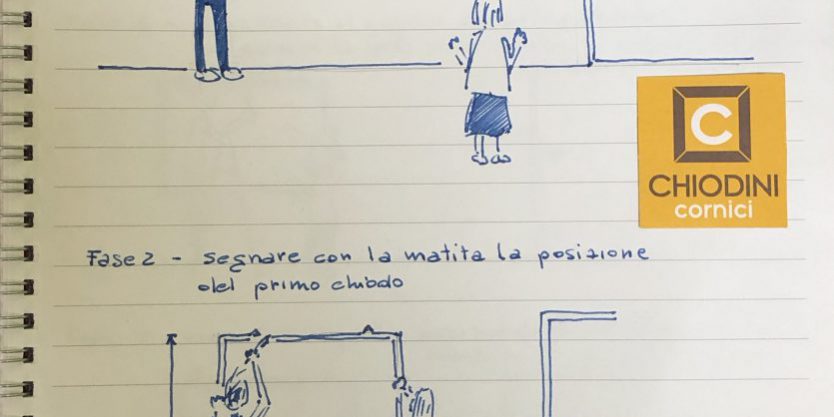 C
CHIODINI
cornici
Fase 2 - segnare con la matita la posizione
del primo chiodo